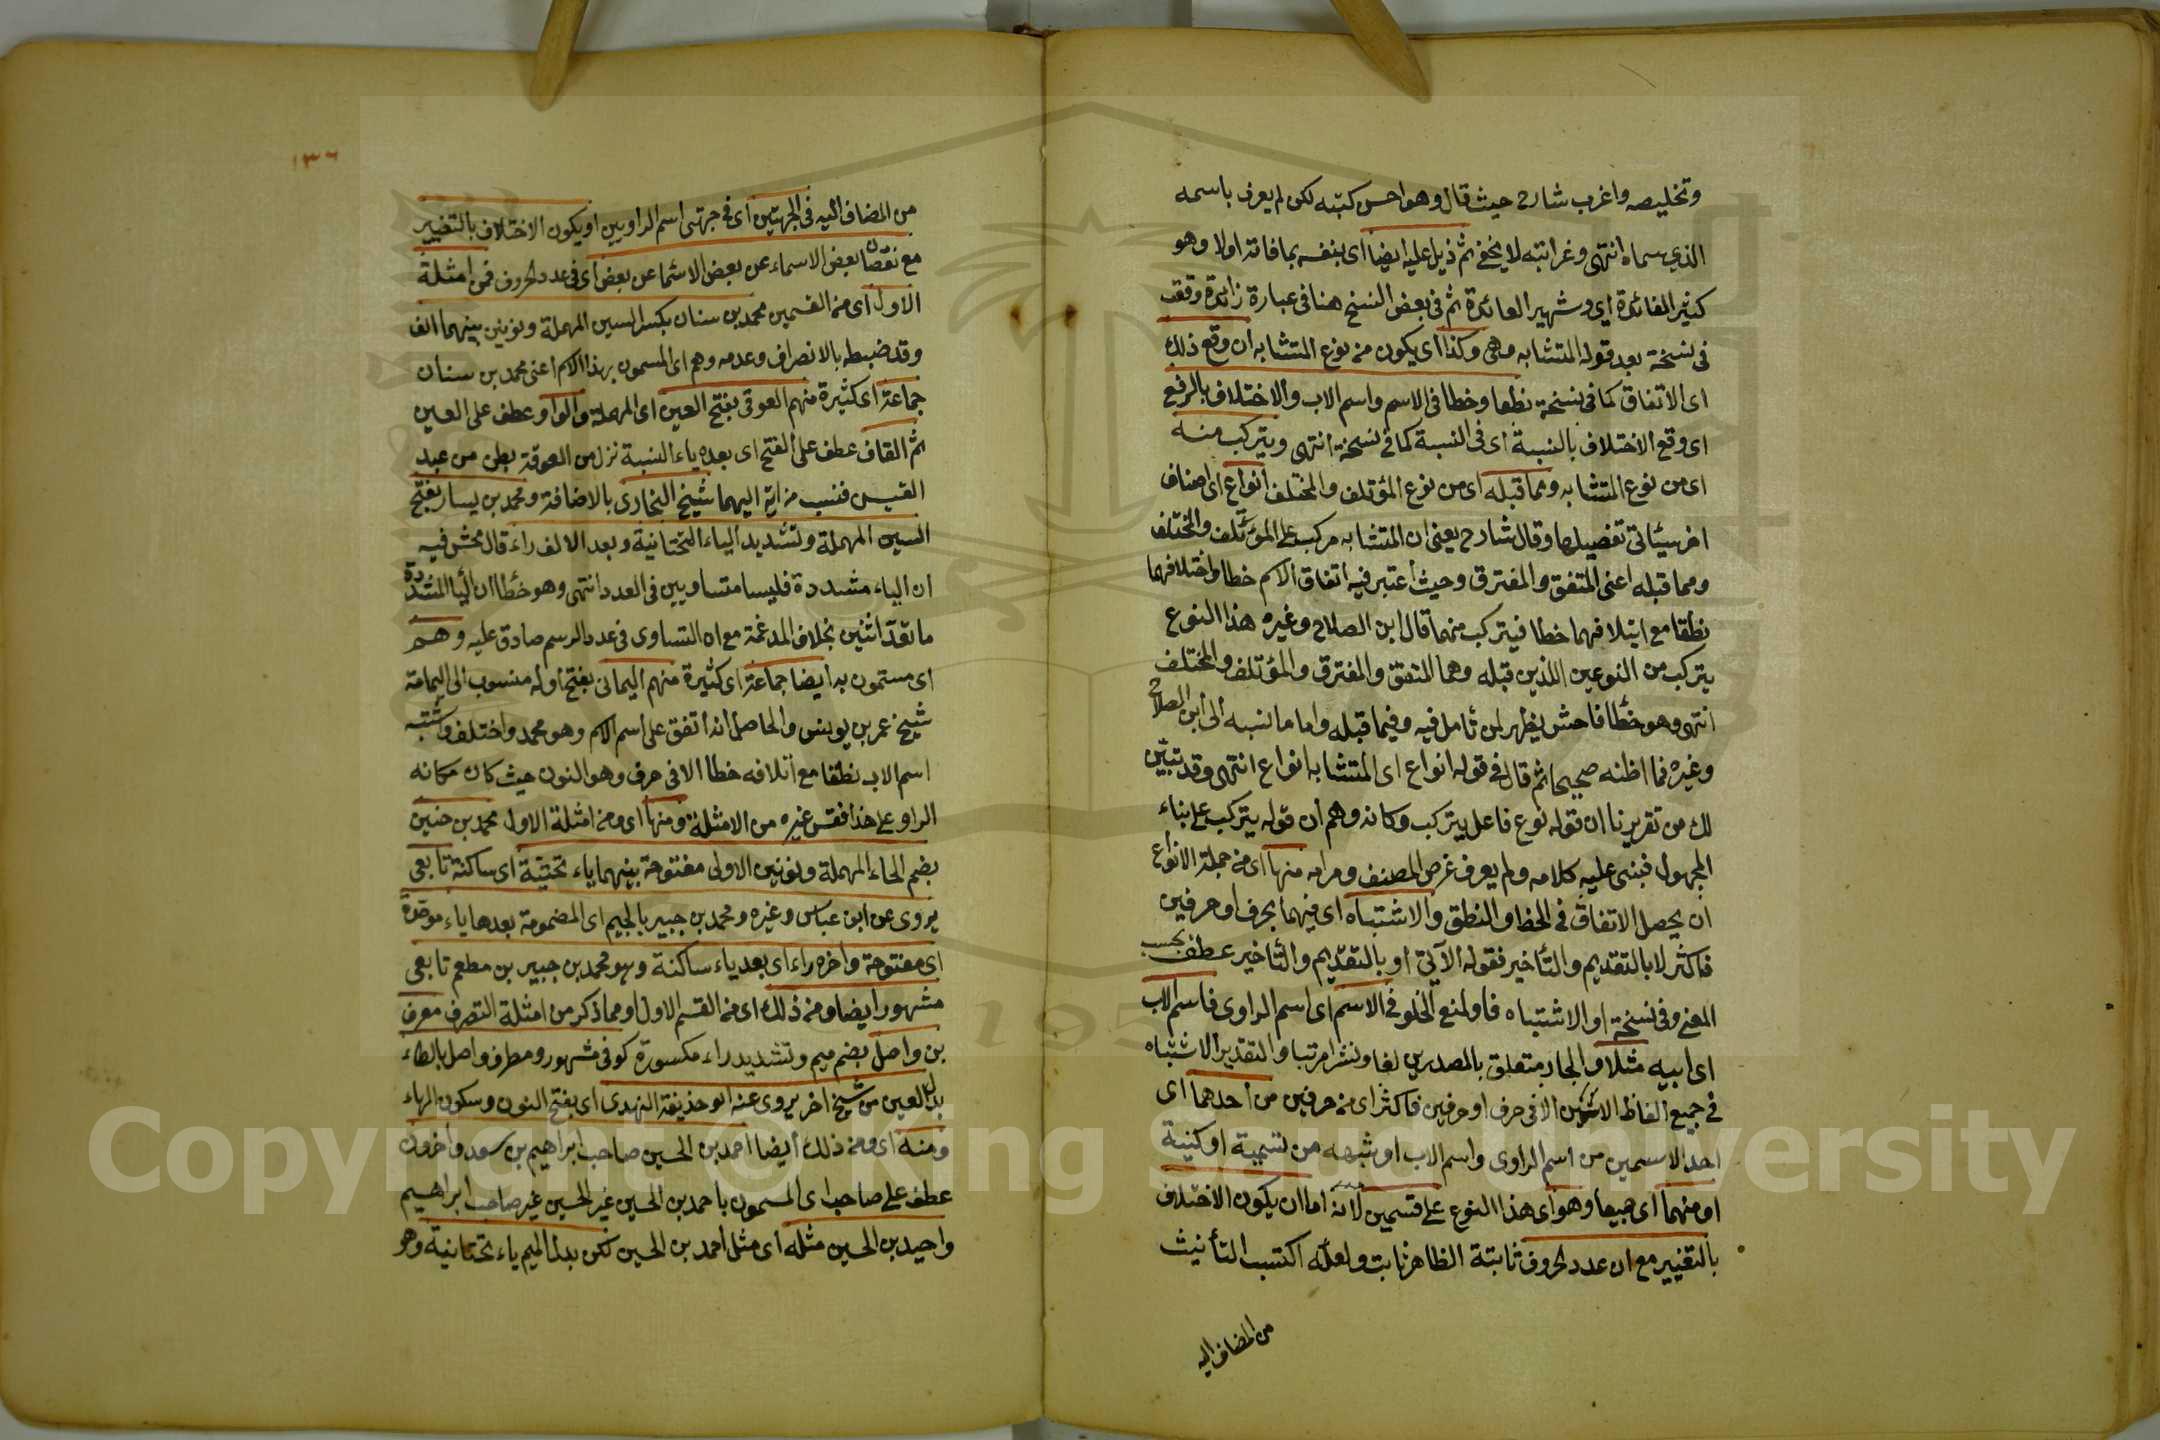 وتخليصه واغرب شارح حيث قال وهو احسن كتبه لكن لم يعرف باسمه
الذي سماه انتهى وغرابته لا يخفى ثم ذيل عليه ايضا اى بنفسه بما فاته اولا وهو
كثير الفائدة اي وشهير العائدة ثم في بعض النسخ هنا في عبارة زائدة وقف
في نسخة بعد قوله المتشابه وهى وكذا اى يكون من نوع المتشابه ان وقع ذلك
اى الاتفاق كما في نسخة نطقا وخطا في الاسم واسم الاب والاختلاف بالرفع
اى وقع الاختلاف بالنسبة اى في النسبة كما في نسخة انتهى ويتركب منه
اى من نوع المتشابه ومما قبله اى من نوع المؤتلف والمختلف انواع اى اصناف
اخر سيئاتى تفصيلها وقال شارح يعنى ان المتشابه مركب على المؤتلف والمختلف
ومما قبله اعنى المتفق والمفترق وحيث اعتبر فيه اتفاق الاسم خطا واختلافهما
نطقا مع ايتلافهما خطا فيتركب منهما قال ابن الصلاح وغيره هذا النوع
يتركب من النوعين اللذين قبله وهما المتفق والمفترق والمؤتلف والمختلف
انتهى وهو خطأ فاحش يظهر لمن تامل فيه وفيما قبله واما ما نسبه الى ابن الصلاح
وغيره فما اظنه صحيحا ثم قال في قوله انواع اى المتشابه انواع انتهى وقد تبين
لك من تقريرنا ان قوله نوع فاعل يتركب وكانه وهم ان قوله يتركب على بناء
المجهول فبنى عليه كلامه ولم يعرف غرض المصنف ومرامه منها اى من جملة الانواع
ان يحصل الاتفاق في الخط والنطق والاشتباه اى فيهما بحرف او حرفين
فاكثر لا بالتقديم والتأخير فقوله الآتي او بالتقديم والتأخير عطف بحسب
المعنى وفي نسخة او الاشتباه فاو لمنع الخلو في الاسم اى اسم الراوى فاسم الاب
اى ابيه مثلا والجار متعلق بالمصدرين لفا ونشرا مرتبا والتقدير الاشتباه
في جميع الفاظ الاسمين الا في حرف او حرفين فاكثر اى من حرفين من احدهما اى
احد الاسمين من اسم الراوى واسم الاب او شبهه من تسمية او كنية
او منهما اى جميعا وهو اى هذا النوع على قسمين لانه اما ان يكون الاختلاف
بالتغيير مع ان عدد الحروف ثابتة الظاهر ثابت ولعله اكتسب التأنيث
من المضاف اليه
١٣٦
من المضاف اليه في الجهتين اى في جهتى اسم الراويين او يكون الاختلاف بالتغيير
مع نقصان بعض الاسماء عن بعض الاسما عن بعض اى في عدد الحروف فمن امثلة
الاول اى من القسمين محمد بن سنان بكسر السين المهملة ونونين بينهما الف
وقد ضبطه بالانصراف وعدمه وهم اى المسمون بهذا الاسم اعنى محمد بن سنان
جماعة اى كثيرة منهم العوقى بفتح العين اى المهملة والواو عطف على العين
ثم القاف عطف على الفتح اى بعده ياء النسبة نزل من العوقة بطن من عبد
القيس فنسب من اية اليهما شيخ البخارى بالاضافة ومحمد بن يسار بفتح
السين المهملة وتشديد الياء التحتانية وبعد الالف راء قال محش فيه
ان الياء مشددة فليسا متساويين في العدد انتهى وهو خطأ ان اليا المشددة
ما تعد اثنين بخلاف المدغمة مع ان التساوى في عدد الرسم صادق عليه وهم
اى مسمون به ايضا جماعة اى كثيرة منهم اليمانى بفتح اوله منسوب الى اليمامة
شيخ عمر بن يونس والحاصل انه اتفق على اسم الاسم وهو محمد واختلف واشتبه
اسم الاب نطقا مع ائتلافه خطا الا في حرف وهو النون حيث كان مكانه
الراو على هذا فقس غيره من الامثلة ومنها اى ومن امثلة الاول محمد بن حنين
بضم الحاء المهملة ونونين الاولى مفتوحة بينهما ياء تحتية اى ساكنة تابعى
يروى عن ابن عباس وغيره ومحمد بن جبير بالجيم اى المضمومة بعدها ياء موحدة
اى مفتوحة واخره راء اى بعد ياء ساكنة وهو محمد بن جبير بن مطعم تابعى
مشهور ايضا ومن ذلك اى من القسم الاول او مما ذكر من امثلة التصرف معرف
بن واصل بضم ميم وتشديد راء مكسورة كوفى مشهور ومطرف واصل بالطاء
بدل العين من شيخ اخر يروى عنه ابو حذيفة النهدى اى بفتح النون وسكون الهاء
ومنه اى ومن ذلك أيضا احمد بن الحسين صاحب ابراهيم بن سعد واخرون
عطف على صاحب اى المسمون باحمد بن الحسين غير الحسين غير صاحب ابراهيم
واحيد بن الحسين مثله اى مثل احمد بن الحسين لكن بدل الميم ياء تحتانية وهو
Copyright © King Saud University
195